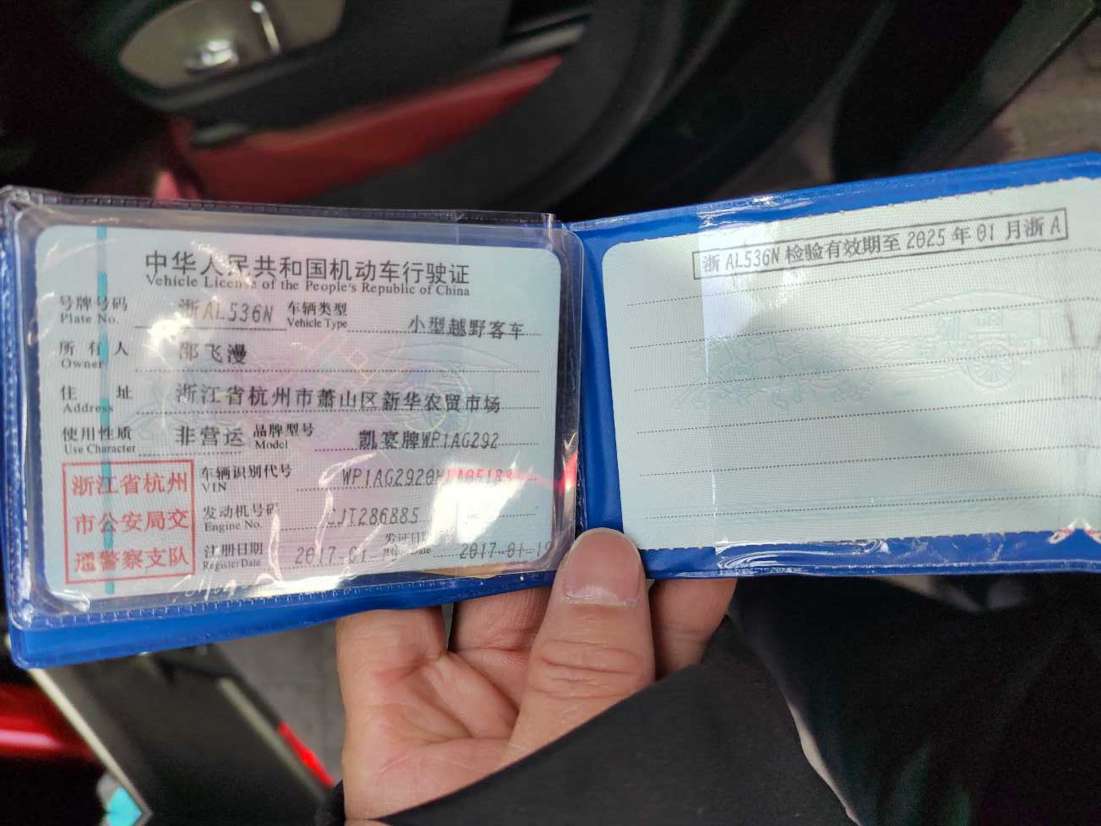 中华人民共和国机动车行驶证
Vehicle License of the People's Republic of China
号牌号码 浙AL536N 车辆类型 小型越野客车
Plate No. Vehicle Type
所有人 邵飞漫
Owner
住址 浙江省杭州市萧山区新华农贸市场
Address
使用性质 非营运 品牌型号 凯宴牌WP1AG292
Use Character Model
浙江省杭州
市公安局交
通警察支队
车辆识别代号
VIN
发动机号码 CJT286885
Engine No.
注册日期 2017-01 发证日期 2017-01-1
Register Date Date
浙AL536N 检验有效期至 2025年01月浙A